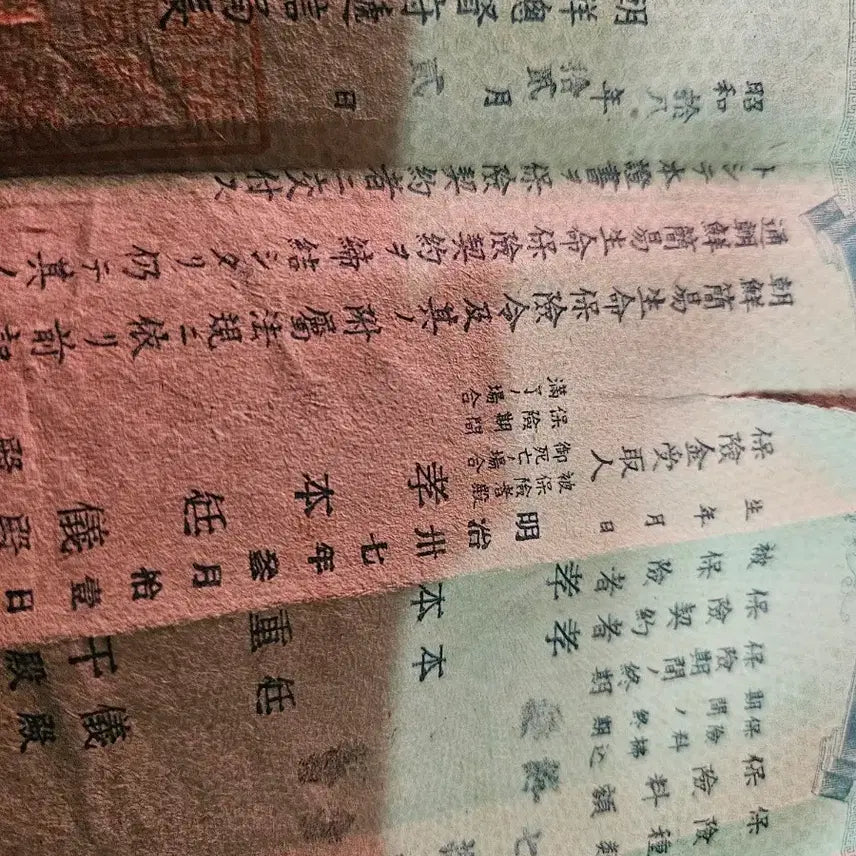 保險種類
保險料額
保險料ノ拂込終期
保險期間ノ終期
保險契約者 孝本任儀殿
被保險者 孝本重千殿
生年月日 明治卅七年 月拾壹日
保險金受取人
被保險者御死亡ノ場合 殿
保險期間滿了ノ場合 孝本任儀殿
朝鮮簡易生命保險令及其ノ附屬法規ニ依リ前記
通朝鮮簡易生命保險契約ヲ締結シタリ仍テ其ノ
トシテ本證書ヲ保險契約者ニ交付ス
昭和拾八年拾貳月貳 日
朝鮮總督府遞信局長